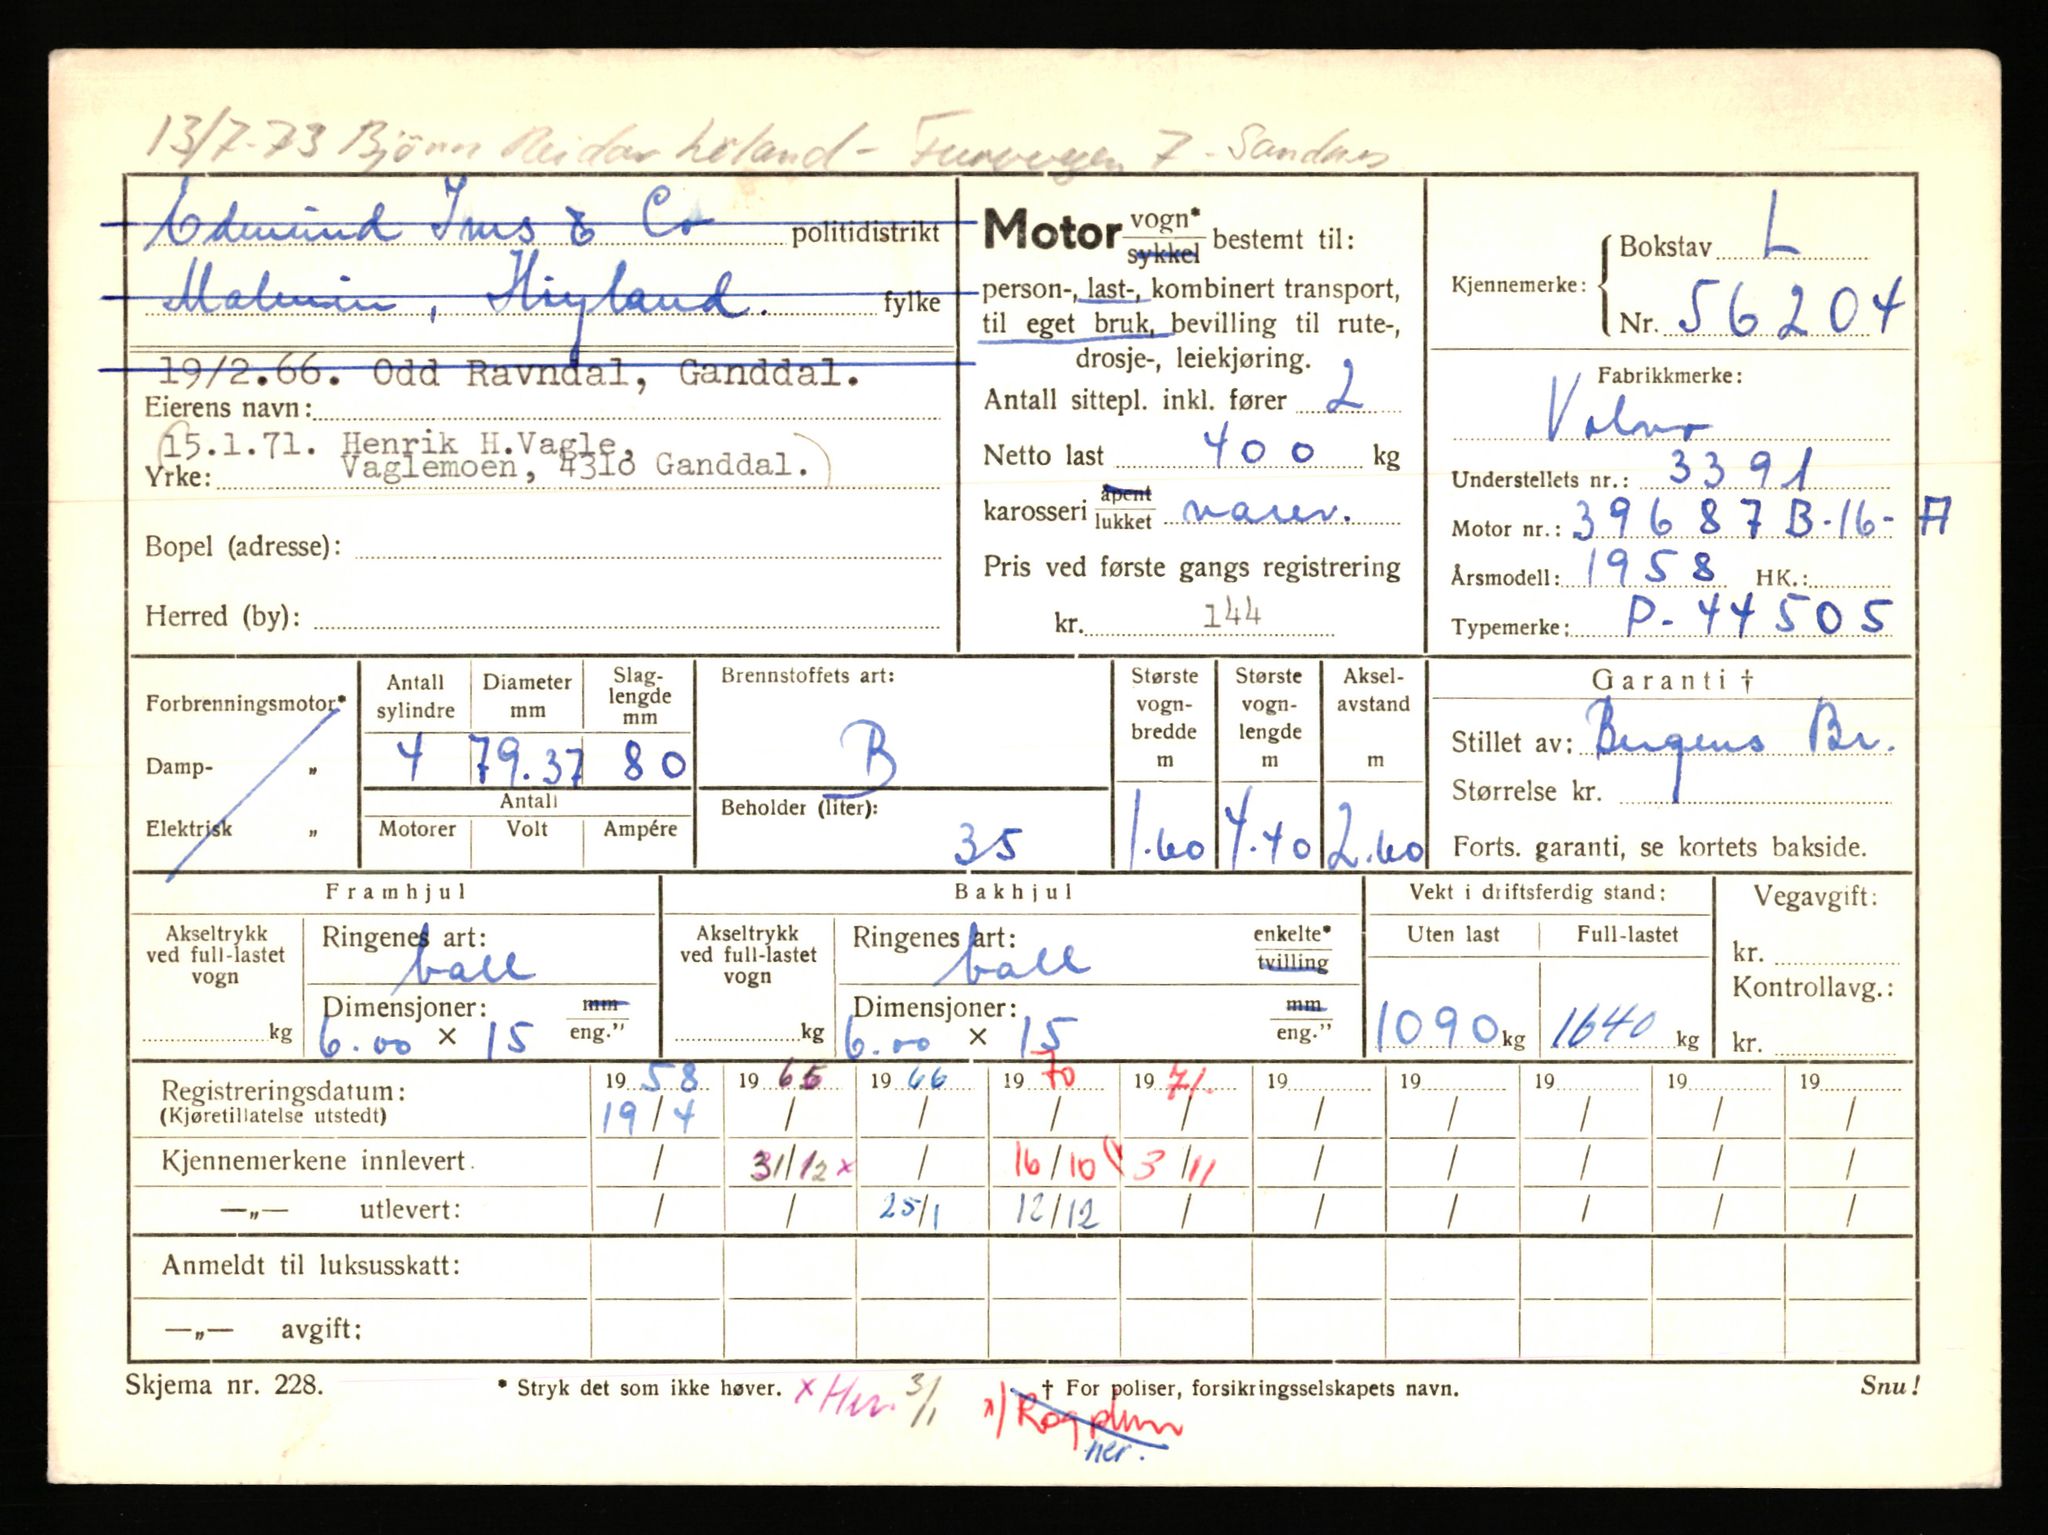 13/7-73 Bjönn Reidar Löland - Furuvegen 7 - Sandnes
Edmund Ims & Co politidistrikt
Malmin, Høyland. fylke
19/2.66. Odd Ravndal, Ganddal.
Eierens navn:
15.1.71. Henrik H.Vagle,
Yrke: Vaglemoen, 4310 Ganddal.
Bopel (adresse):
Herred (by):
Motor vogn* sykkel bestemt til:
person-, last-, kombinert transport,
til eget bruk, bevilling til rute-,
drosje-, leiekjøring.
Antall sittepl. inkl. fører 2
Netto last 400 kg
karosseri åpent lukket varev.
Pris ved første gangs registrering
kr. 144
Kjennemerke: Bokstav L
Nr. 56204
Fabrikkmerke:
Volvo
Understellets nr.: 3391
Motor nr.: 39687 B-16-A
Årsmodell: 1958 HK.:
Typemerke: P-44505
Forbrenningsmotor*
Damp- „
Elektrisk „
Antall sylindre Diameter mm Slag-lengde mm
4 79.37 80
Antall
Motorer Volt Ampére
Brennstoffets art:
B
Beholder (liter):
35
Største vogn-bredde m Største vogn-lengde m Aksel-avstand m
1.60 4.40 2.60
Garanti †
Stillet av: Bergens Br.
Størrelse kr.
Forts. garanti, se kortets bakside.
Framhjul
Akseltrykk ved full-lastet vogn
kg
Ringenes art:
ball
Dimensjoner: mm
6.00 × 15 eng.”
Bakhjul
Akseltrykk ved full-lastet vogn
kg
Ringenes art: enkelte*
ball tvilling
Dimensjoner: mm
6.00 × 15 eng.”
Vekt i driftsferdig stand:
Uten last Full-lastet
1090 kg 1640 kg
Vegavgift:
kr.
Kontrollavg.:
kr.
Registreringsdatum: 19 58 19 65 19 66 19 70 19 71. 19 19 19 19 19
(Kjøretillatelse utstedt) 19/4 / / / / / / / / /
Kjennemerkene innlevert. / 31/12 x / 16/10 3/11 / / / / /
—„— utlevert: / / 25/1 12/12 / / / / / /
Anmeldt til luksusskatt:
—„— avgift:
Skjema nr. 228. * Stryk det som ikke høver. † For poliser, forsikringsselskapets navn. Snu!
x 3/1
ner.